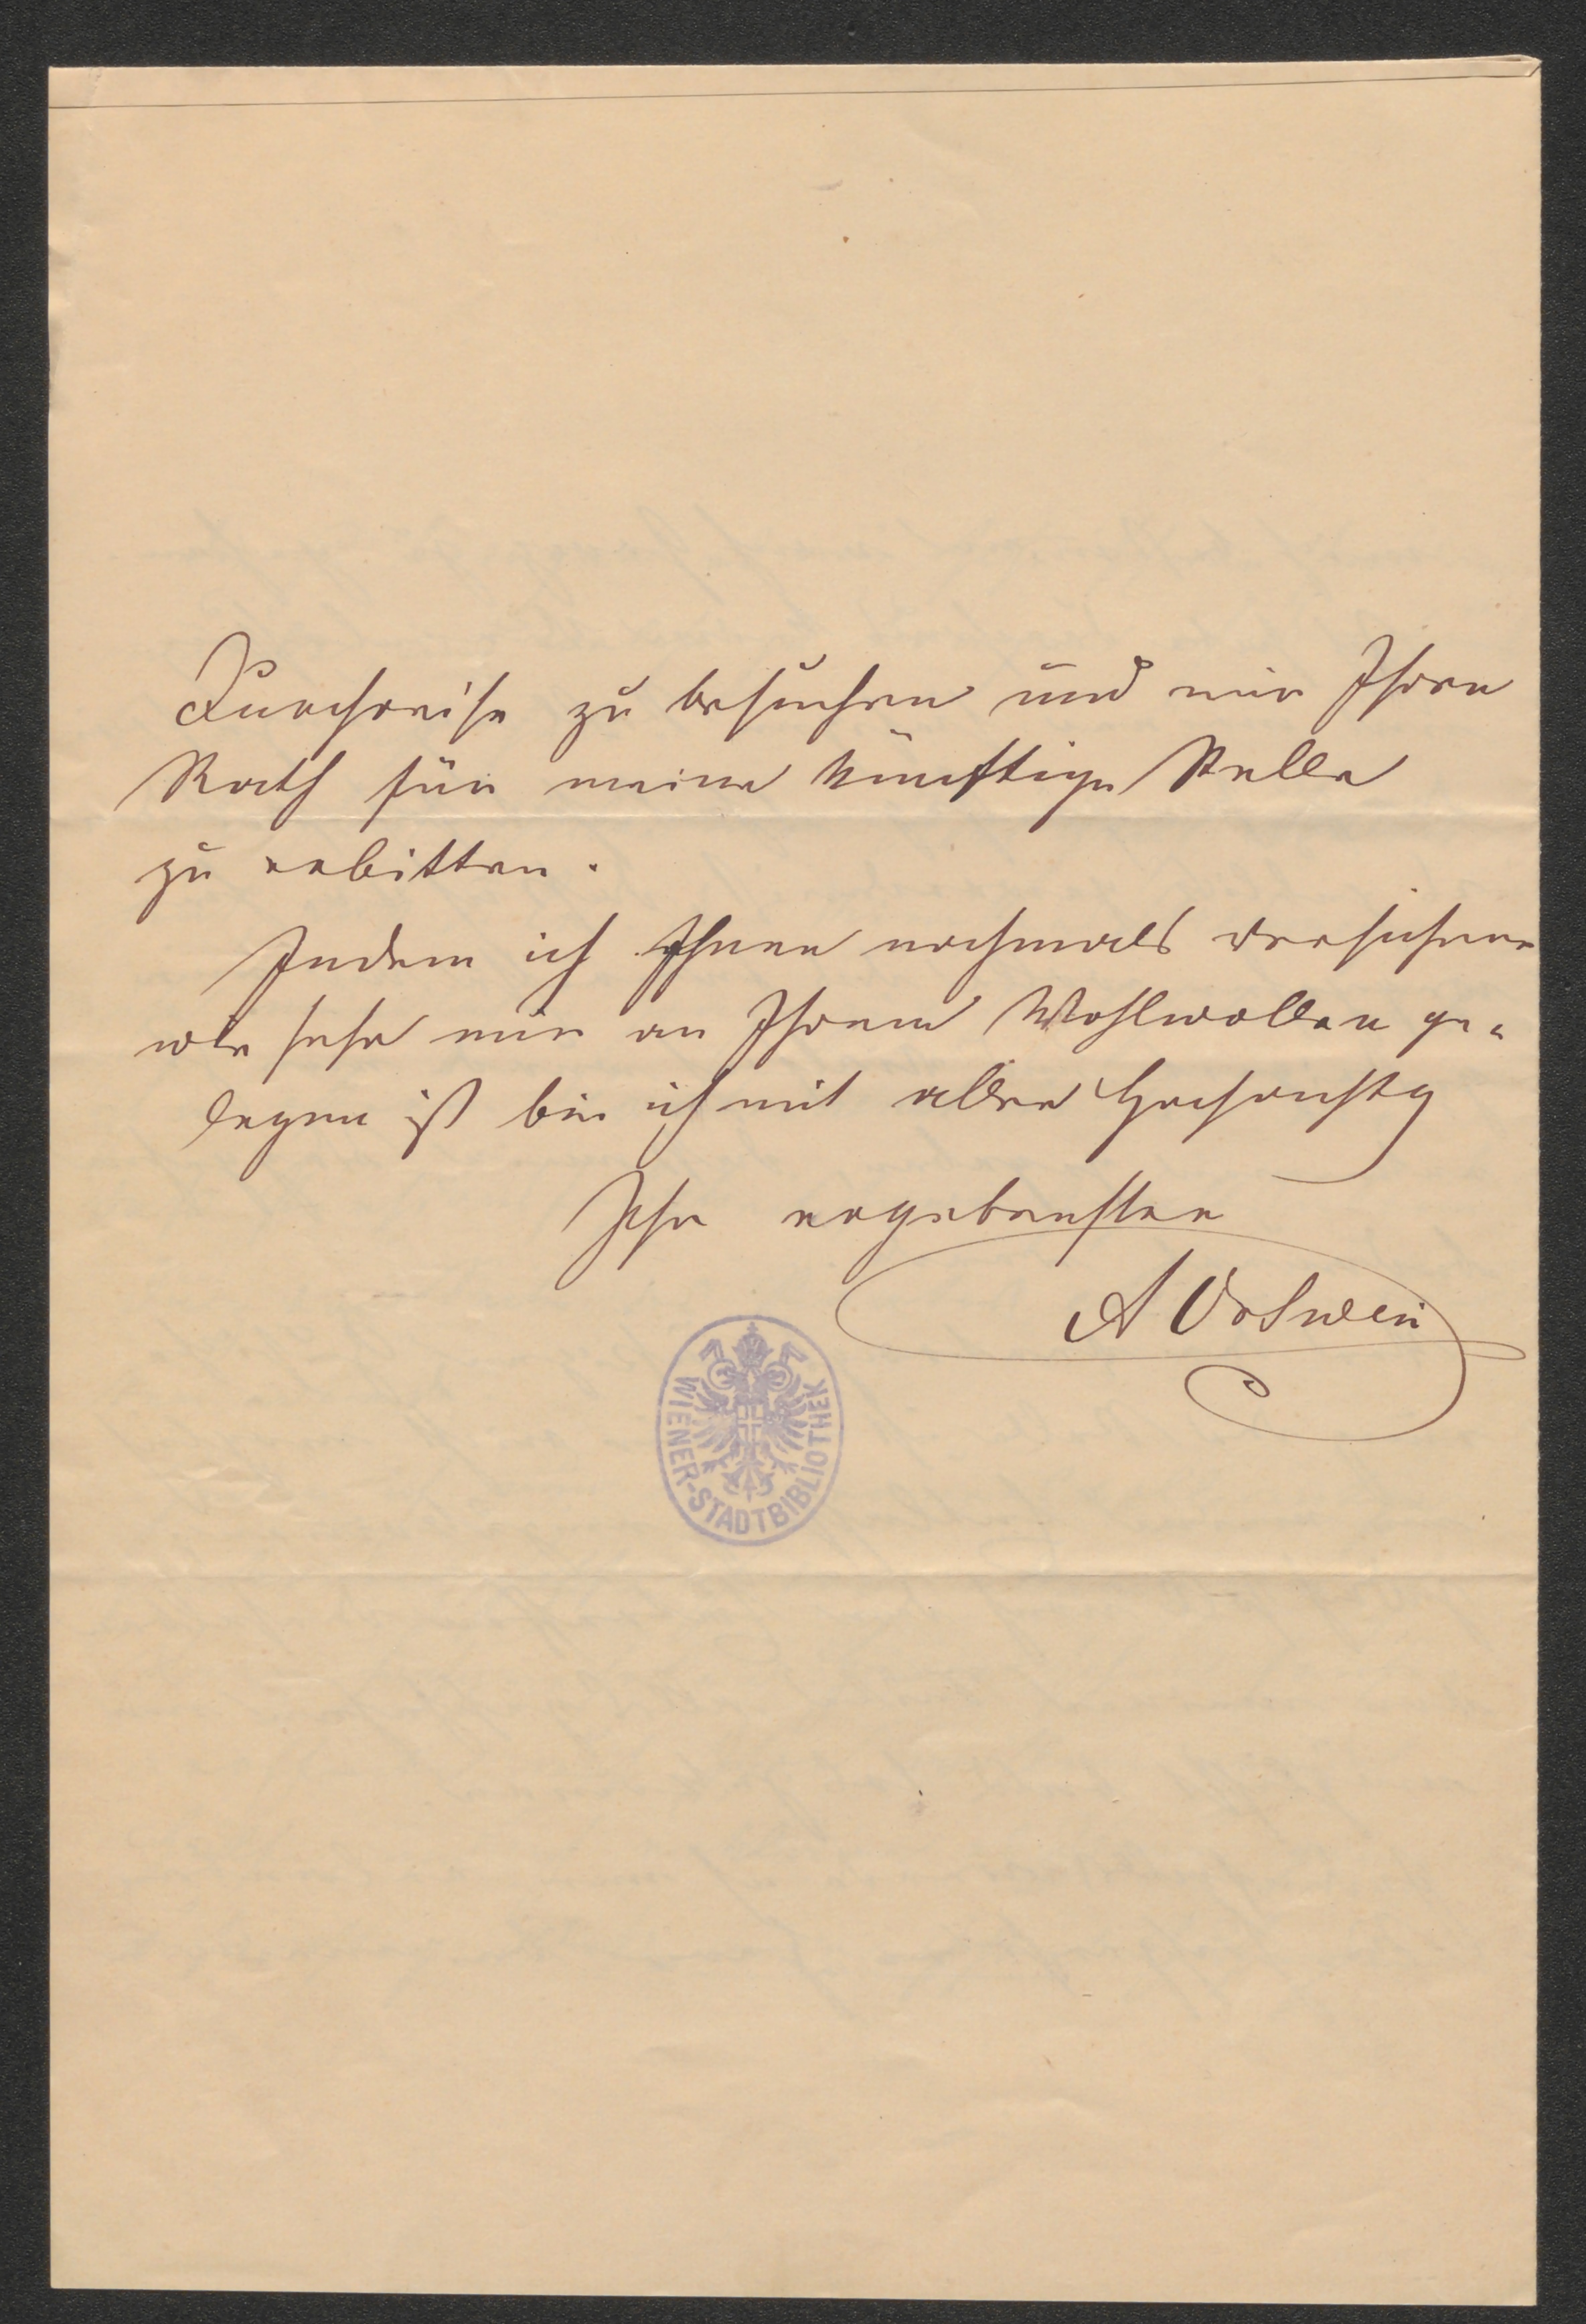 Durchreise zu besuchen und mir Ihren
Rath für meine künftige Stelle
zu erbitten.
Indem ich Ihnen nochmals versichere
wie sehr mir an Ihrem Wohlwollen ge-
legen ist bin ich mit aller Hochachtg
Ihr ergebenster
A Ortwein
WIENER-STADTBIBLIOTHEK